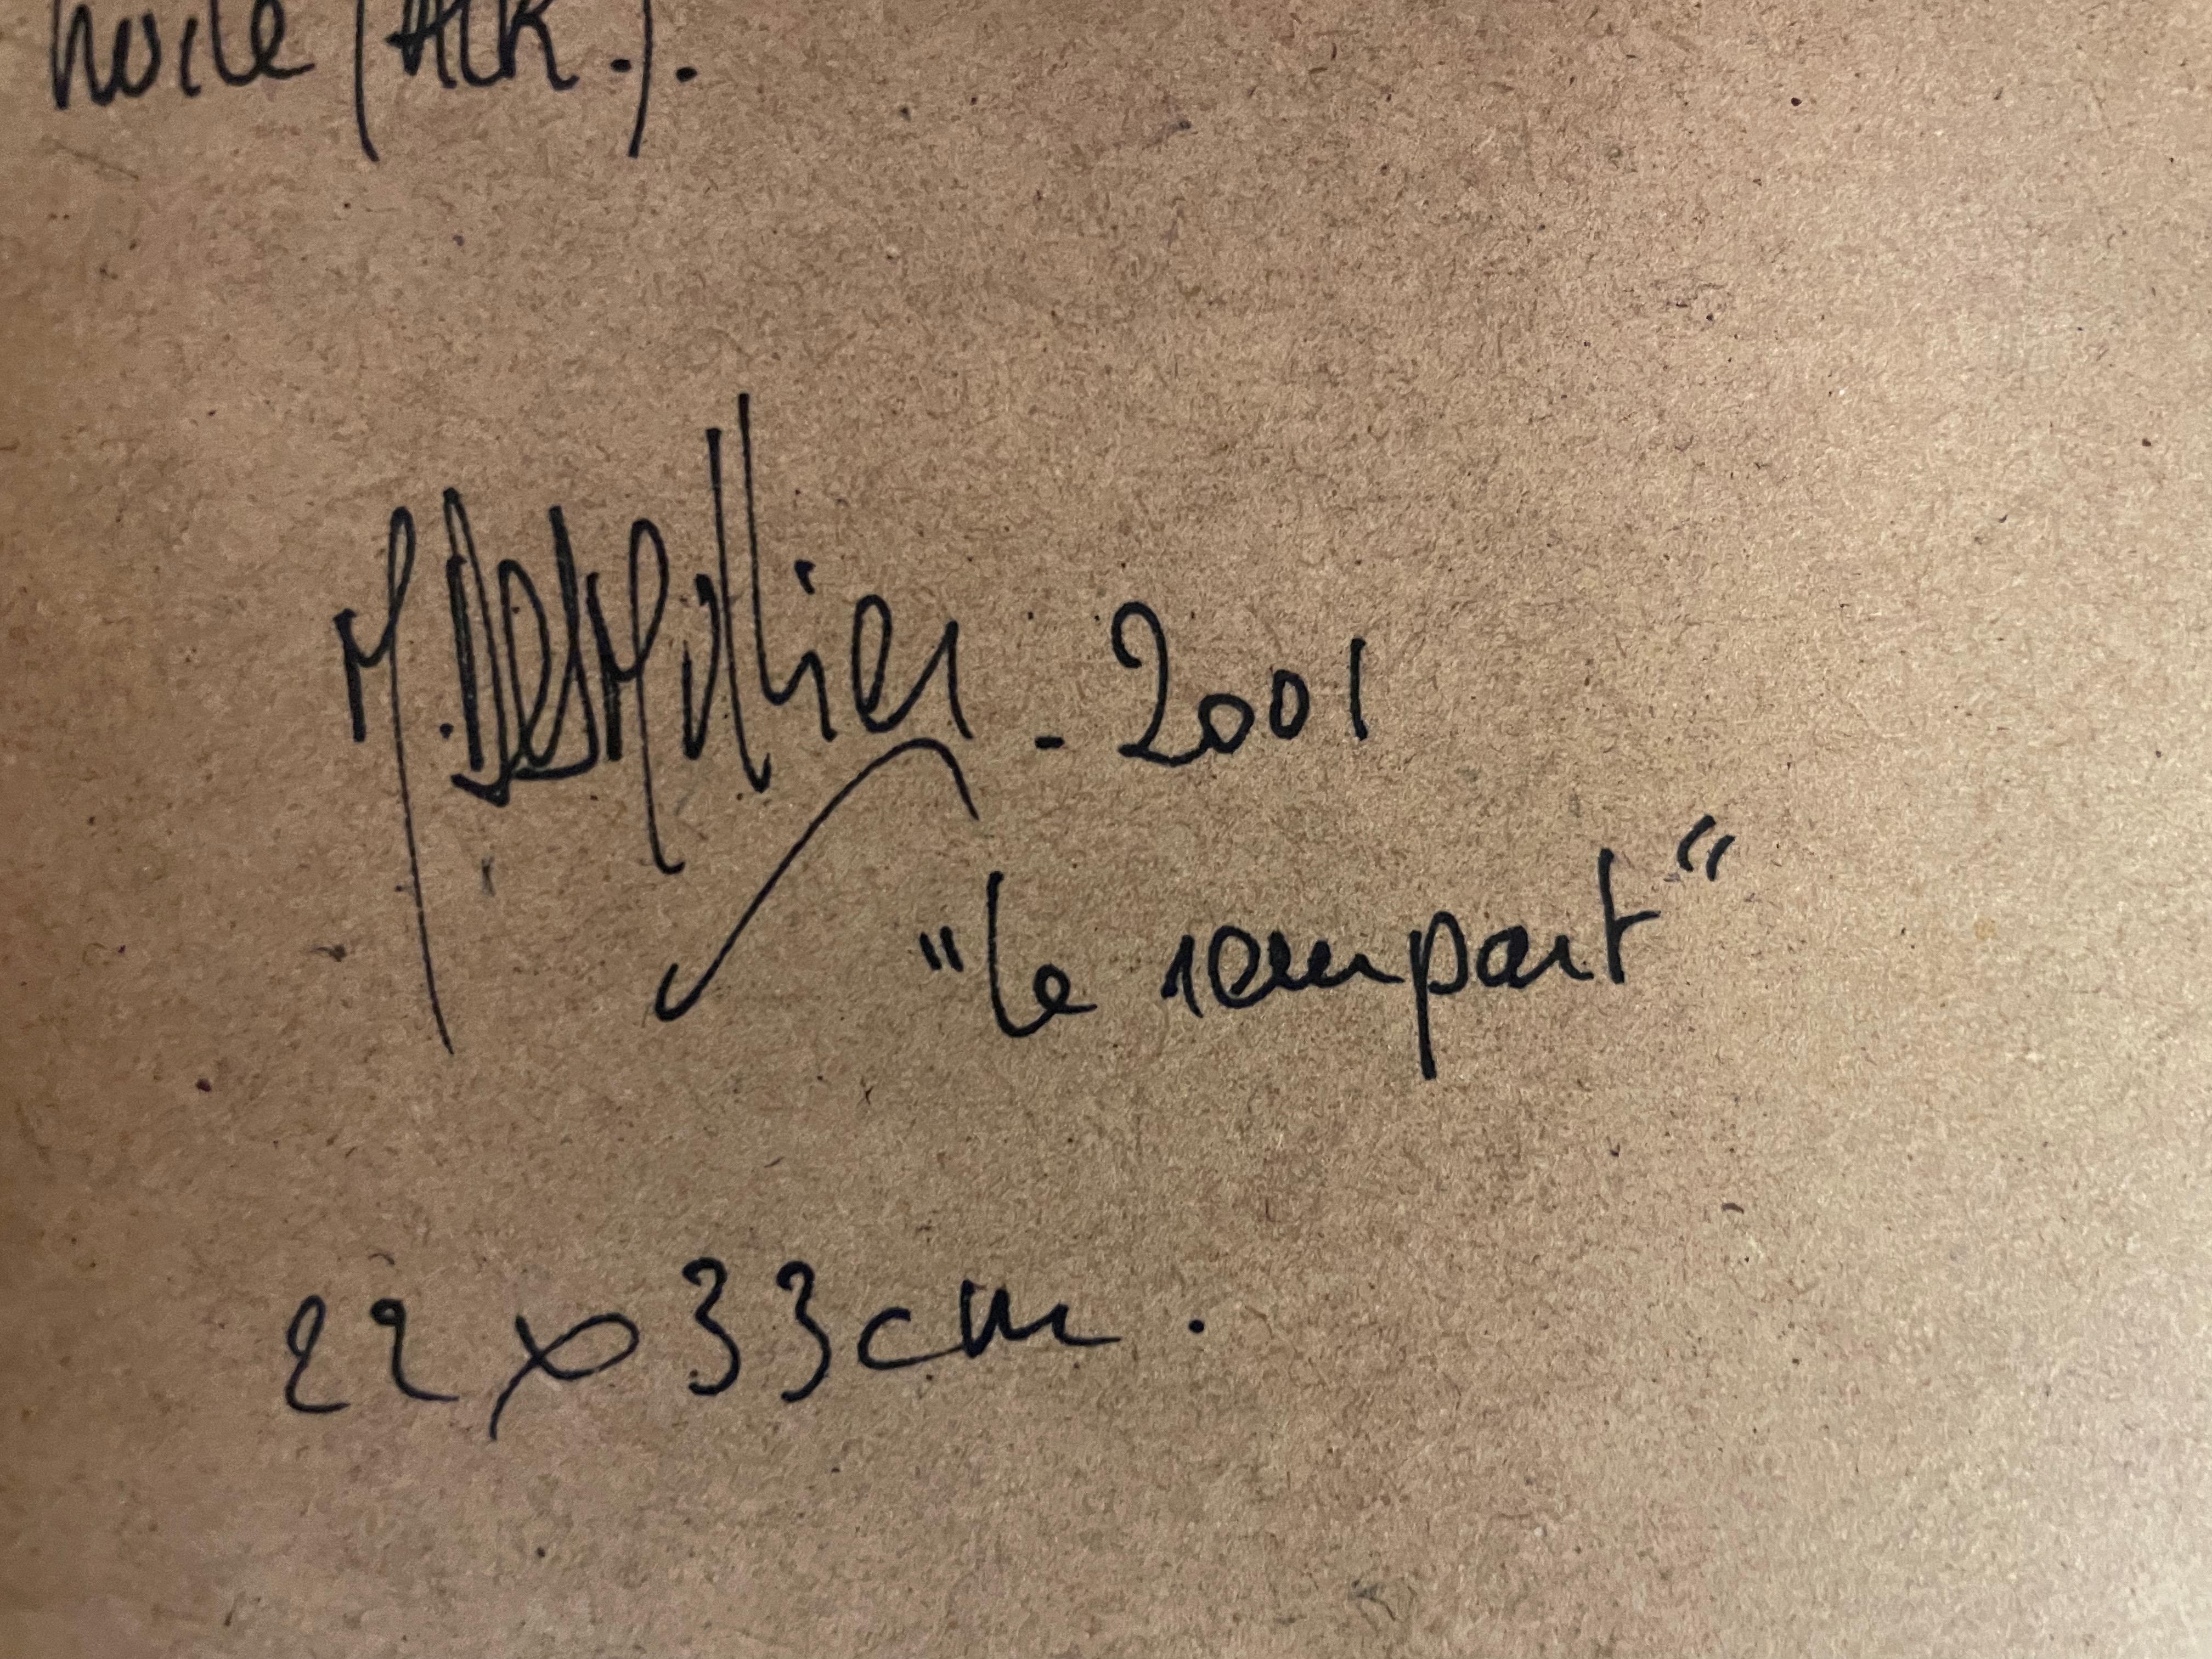 huile (Alk.).
M. DesMollier - 2001
"le rempart"
22 x 33 cm.